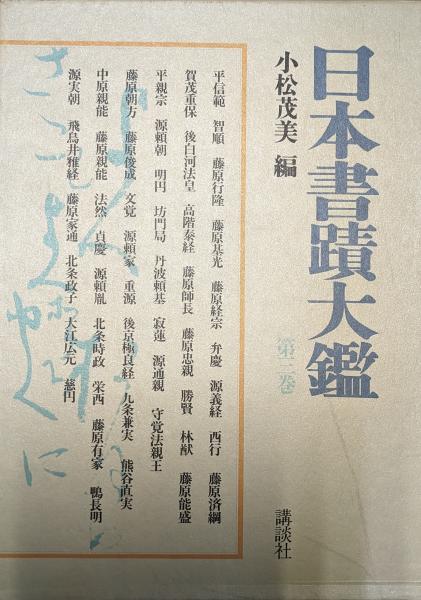 日本書蹟大鑑
第三巻
小松茂美 編
講談社
平信範 智順 藤原行隆 藤原基光 藤原経宗 弁慶 源義経 西行 藤原済綱
賀茂重保 後白河法皇 高階泰経 藤原師長 藤原忠親 勝賢 林猷 藤原能盛
平親宗 源頼朝 明円 坊門局 丹波頼基 寂蓮 源通親 守覚法親王
藤原朝方 藤原俊成 文覚 源頼家 重源 後京極良経 九条兼実 熊谷直実
中原親能 藤原親能 法然 貞慶 源頼胤 北条時政 栄西 藤原有家 鴨長明
源実朝 飛鳥井雅経 藤原家通 北条政子 大江広元 慈円